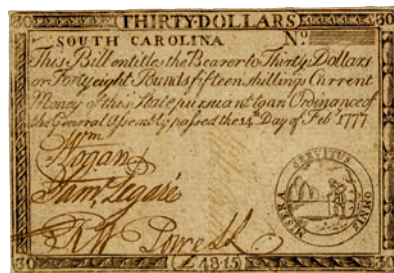 30 THIRTY DOLLARS 30
SOUTH CAROLINA No.
This Bill entitles the Bearer to Thirty Dollars
or Forty eight Pounds fifteen shillings Current
Money of this State pursuant to an Ordinance of
the General Assembly passed the 14th Day of Feb 1777
Wm
Logan
Saml Legaré
Powell
SERVITUS OMNIS MISERA
30 £48:15 30